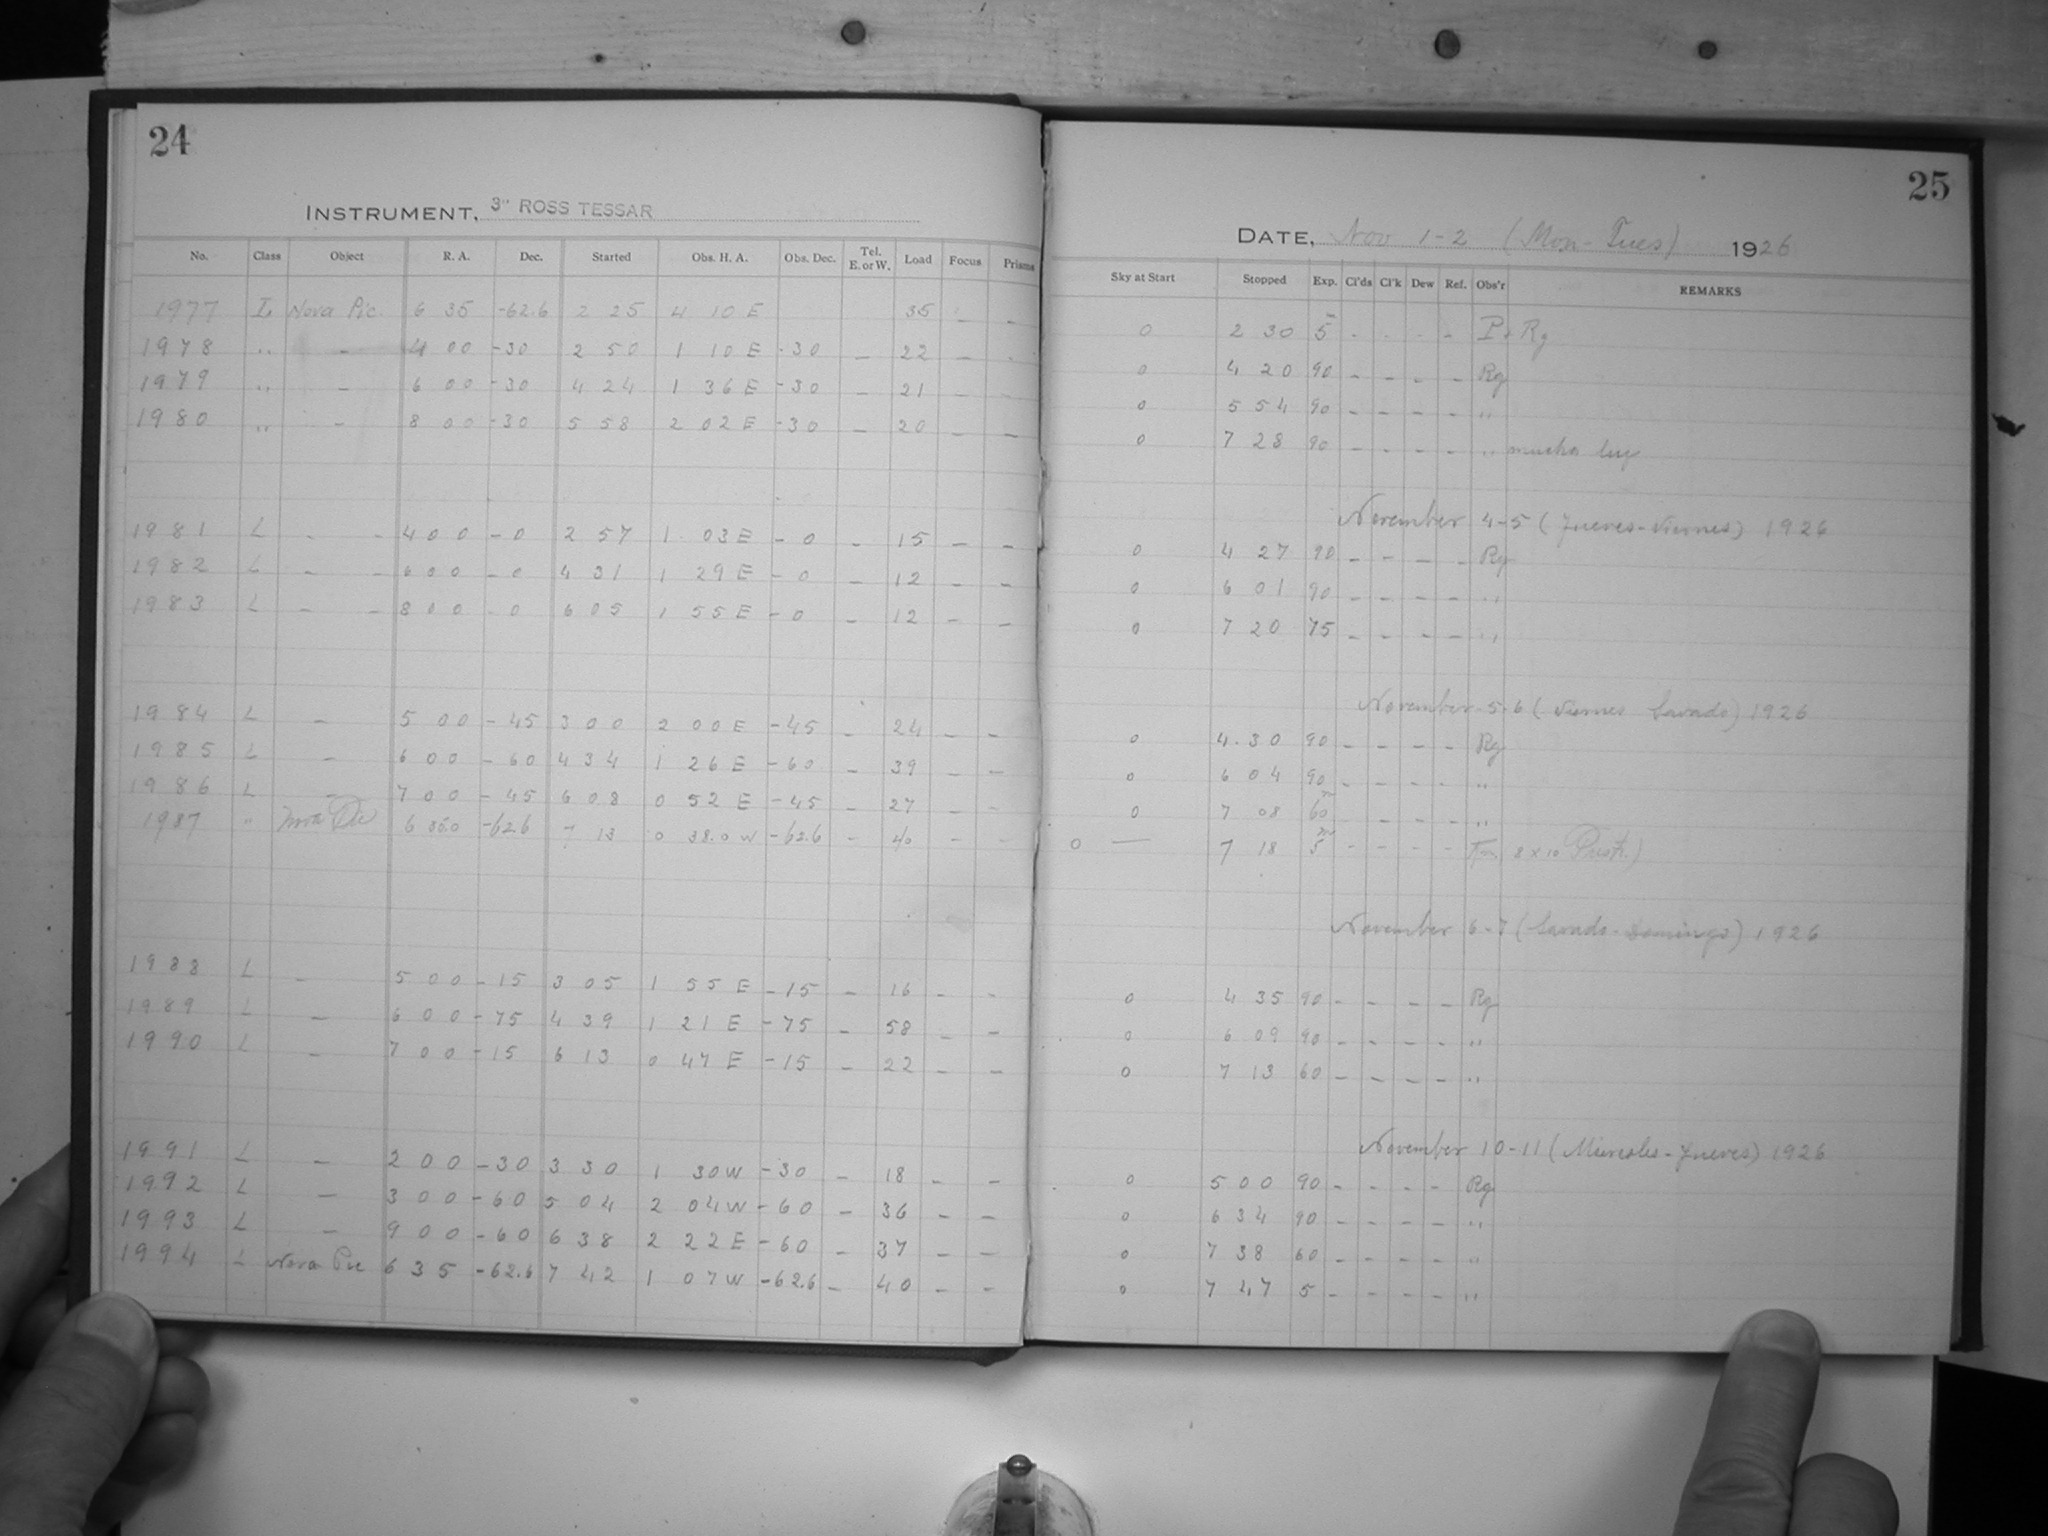 24
INSTRUMENT, 3" ROSS TESSAR
No. Class Object R. A. Dec. Started Obs. H. A. Obs. Dec. Tel. E. or W. Load Focus Prisms
1977 L Nova Pic. 6 35 -62.6 2 25 4 10 E 35 - -
1978 " - 4 00 -30 2 50 1 10 E -30 - 22 - -
1979 " - 6 00 -30 4 24 1 36 E -30 - 21 - -
1980 " - 8 00 -30 5 58 2 02 E -30 - 20 - -
1981 L - - 4 00 - 0 2 57 1 03 E - 0 - 15 - -
1982 L - - 6 00 - 0 4 31 1 29 E - 0 - 12 - -
1983 L - - 8 00 - 0 6 05 1 55 E - 0 - 12 - -
1984 L - 5 00 - 45 3 00 2 00 E -45 - 24 - -
1985 L - 6 00 - 60 4 34 1 26 E -60 - 39 - -
1986 L - 7 00 - 45 6 08 0 52 E -45 - 27 - -
1987 " Nova Pic 6 35.0 -62.6 7 13 0 38.0 W -62.6 - 40 - -
1988 L - 5 00 - 15 3 05 1 55 E -15 - 16 - -
1989 L - 6 00 - 75 4 39 1 21 E -75 - 58 - -
1990 L - 7 00 - 15 6 13 0 47 E -15 - 22 - -
1991 L - 2 00 - 30 3 30 1 30 W -30 - 18 - -
1992 L - 3 00 - 60 5 04 2 04 W -60 - 36 - -
1993 L - 9 00 - 60 6 38 2 22 E -60 - 37 - -
1994 L Nova Pic 6 35 -62.6 7 42 1 07 W -62.6 - 40 - -
25
DATE, Nov 1-2 (Mon-Tues) 1926
Sky at Start Stopped Exp. Cl'ds Cl'k Dew Ref. Obs'r REMARKS
0 2 30 5 - - - - Rg
0 4 20 90 - - - - Rg
0 5 54 90 - - - - "
0 7 28 90 - - - - " mucha luz
November 4-5 (Jueves-Viernes) 1926
0 4 27 90 - - - - Rg
0 6 01 90 - - - - "
0 7 20 75 - - - - "
November 5-6 (Viernes Savado) 1926
0 4 30 90 - - - - Rg
0 6 04 90 - - - - "
0 7 08 60 m - - - - "
0 — 7 18 5 m - - - - 8 x 10
November 6-7 (Savado-Domingo) 1926
0 4 35 90 - - - - Rg
0 6 09 90 - - - - "
0 7 13 60 - - - - "
November 10-11 (Miercoles-Jueves) 1926
0 5 00 90 - - - - Rg
0 6 34 90 - - - - "
0 7 38 60 - - - - "
0 7 47 5 - - - - "